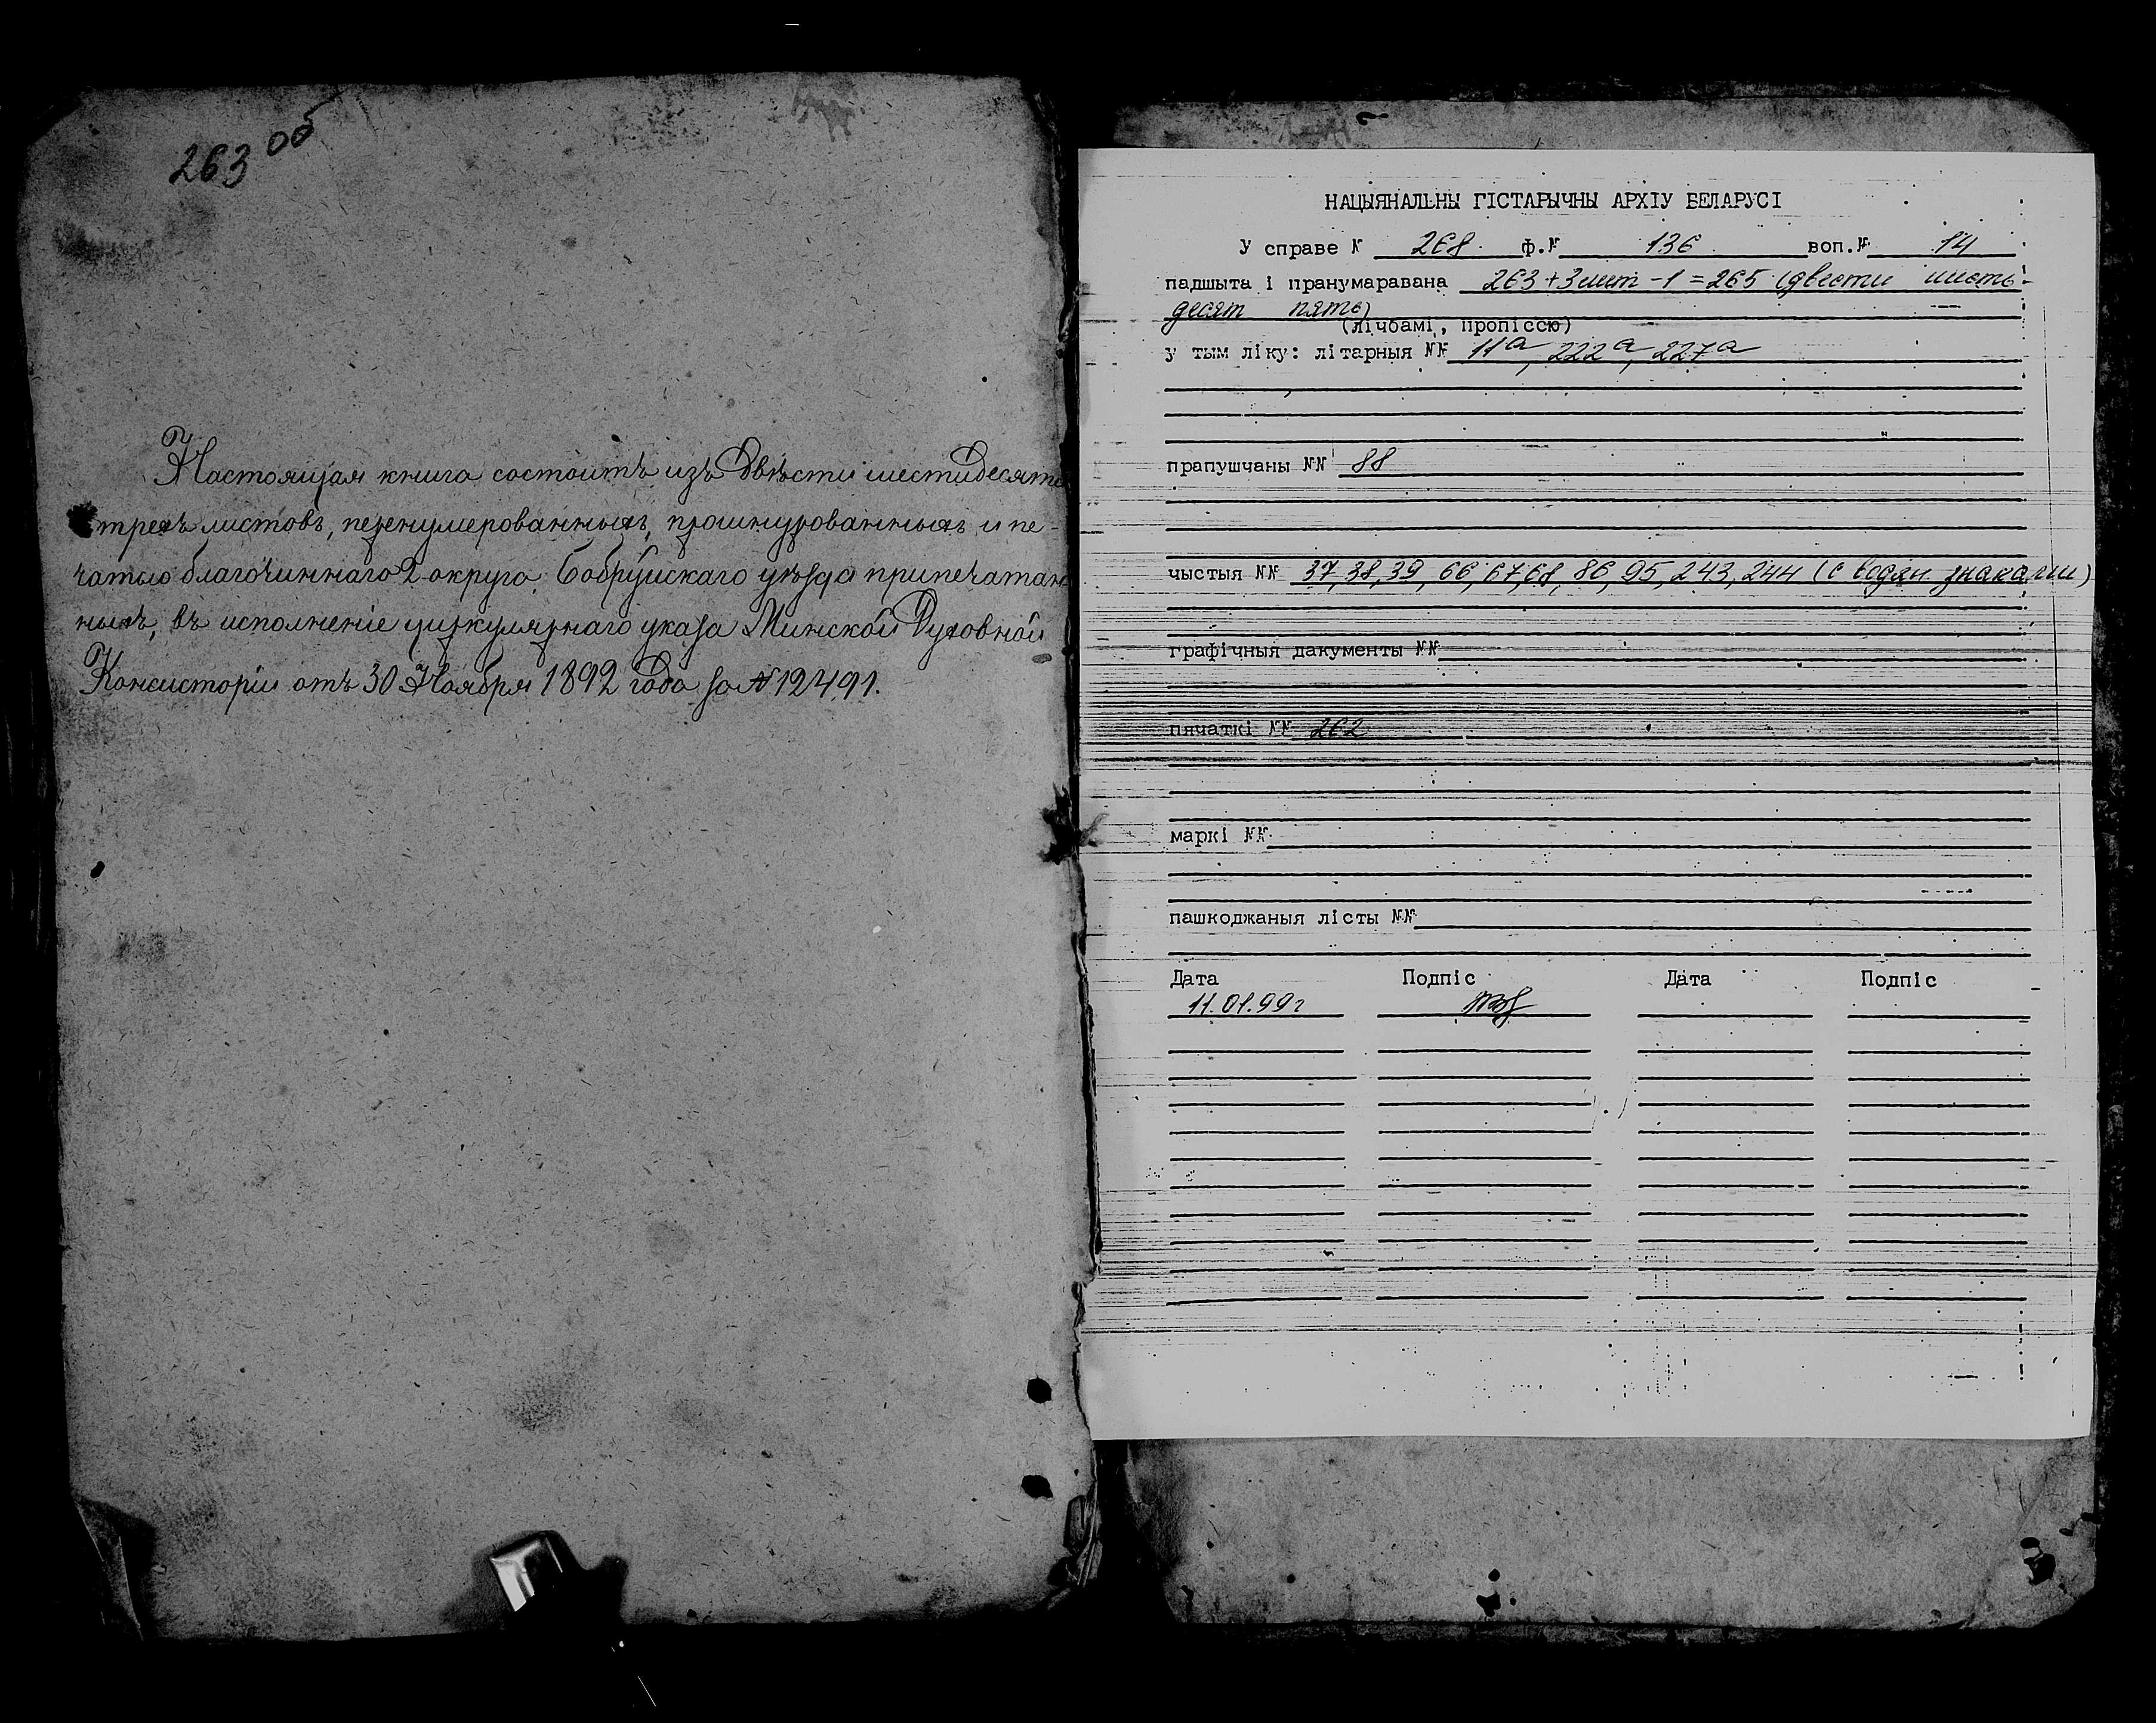 263 об
Настоящая книга состоитъ изъ двѣсти шестидесяти
трехъ листовъ, перенумерованныхъ, прошнурованныхъ и пе-
чатью благочиннаго 2 округа Бобруйскаго уѣзда припечатан
ныхъ, въ исполненіе циркулярнаго указа Минской Духовной
Консисторіи отъ 30 Ноября 1892 года за № 12491.
НАЦЫЯНАЛЬНЫ ГІСТАРЫЧНЫ АРХІУ БЕЛАРУСІ
У справе № 268 ф.№ 136 воп.№ 14
падшыта і пранумаравана 263+3лит-1=265 (двести шесть-
десят пять)
(лічбамі, пропіссю)
у тым ліку: літарныя №№ 11а, 222а, 227а
прапушчаны №№ 88
чыстыя №№ 37,38,39,66,67,68,86,95,243,244 (с водян. знаками)
графічныя дакументы №№
пячаткі №№ 262
маркі №№
пашкоджаныя лісты №№
Дата Подпіс Дата Подпіс
11.01.99г